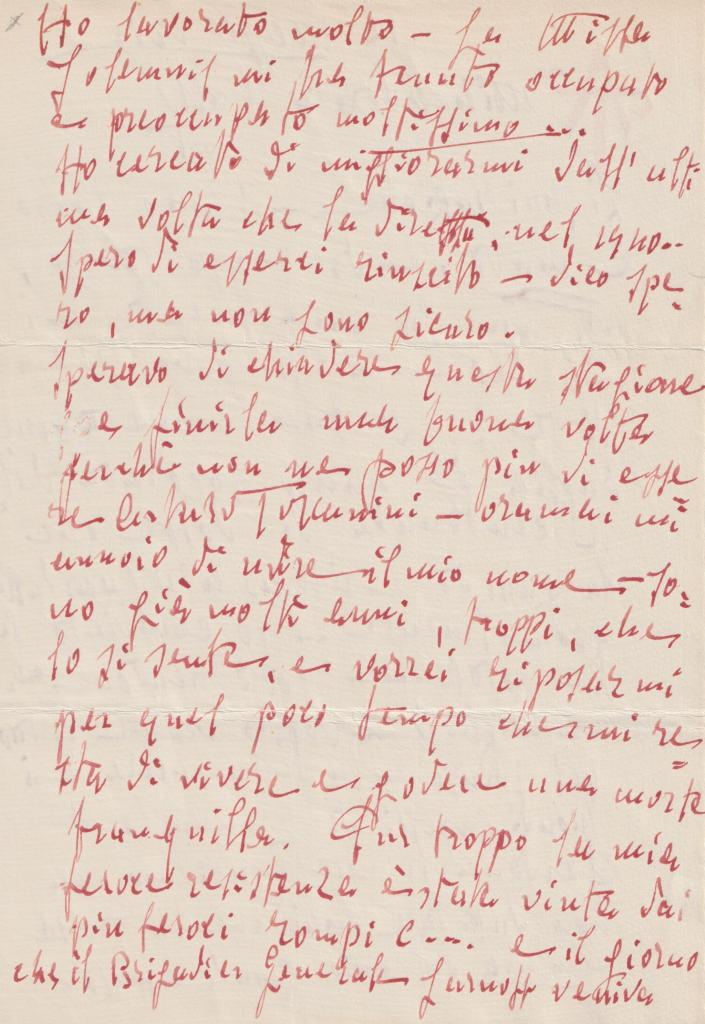 Ho lavorato molto – La Missa
Solemnis mi ha tenuto occupato
e preoccupato moltissimo ...
Ho cercato di migliorarmi dall' ulti
ma volta che la diressi, nel 1940..
Spero di esserci riuscito – dico spe-
ro, ma non sono sicuro.
Speravo di chiudere questa stagione
e finirla una buona volta
perchè non ne posso più di esse
re Arturo Toscanini – oramai mi
annoio di udire il mio nome – So=
no già molti anni, troppi, che
lo si sente, e vorrei riposarmi
per quel poco tempo che mi re=
sta di vivere e godere una morte
tranquilla. Pur troppo la mia
feroce resistenza è stata vinta dai
più feroci rompi c.... e il giorno
che il Brigadier General Sarnoff veniva